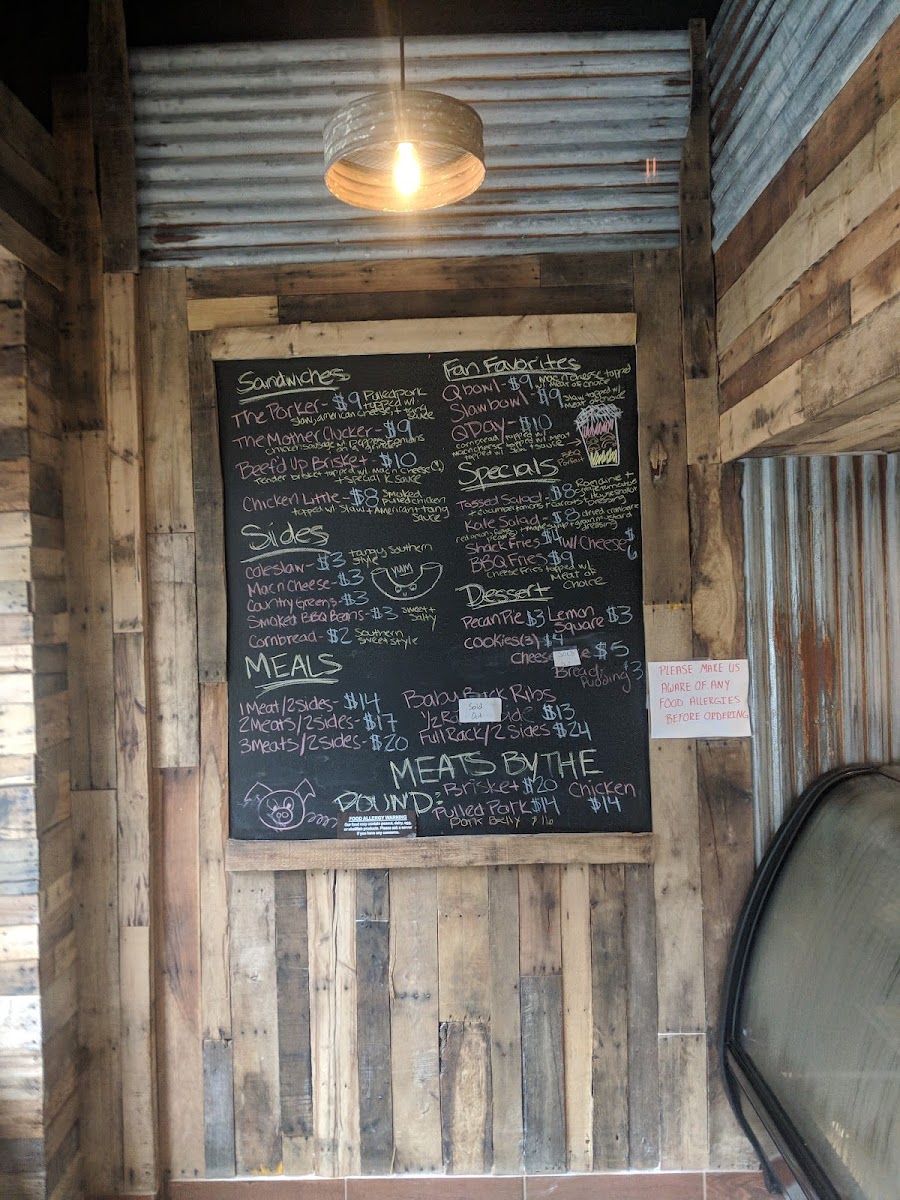 Sandwiches
The Porker - $9 Pulled pork
topped w/
slaw, american cheese, +
sauce
The Mother Clucker - $9
chicken sausage w/ Peppers + onions
on a
Beef'd Up Brisket - $10
Tender brisket topped w/ mac n cheese
+ special K sauce
Chicken Little - $8 smoked
pulled chicken
topped w/ slaw + American + tang
sauce
Sides
coleslaw - $3 tangy southern
style
Mac n Cheese - $3
YUM
Country Greens - $3
Smoked BBQ Beans - $3 sweet +
salty
Cornbread - $2 Southern
sweet style
MEALS
1 Meat/2 Sides - $14
2 Meats/2 Sides - $17
3 Meats/2 Sides - $20
Fan Favorites
Q bowl - $9 Mac n cheese topped
w/ meat of choice
Slaw bowl - $9 slaw topped w/
meat of choice
Q Day - $10
cornbread topped w/ meat
Mac n cheese
topped w/ slaw + sauce
BBQ
Parfait
Specials
Tossed Salad - $8 Romaine +
+ cucumber
dressing
Kale Salad - $8 dried cranberries
red onion
dressing
Shack Fries $4 w/ Cheese $6
BBQ Fries $9
Cheese fries topped w/
Meat of
Choice
Dessert
Pecan Pie $3 Lemon
Square $3
cookies (3) $4
Chees e $5
Sold
Out
Bread
Pudding $3
Baby Back Ribs
Sold
Out
1/2 Ra ide $13
Full Rack/2 Sides $24
MEATS BY THE
POUND:
Brisket $20 Chicken
$14
Pulled Pork $14
Pork Belly $16
FOOD ALLERGY WARNING
Our food may contain peanut, dairy, egg,
or shellfish products. Please ask a server
if you have any concerns.
PLEASE MAKE US
AWARE OF ANY
FOOD ALLERGIES
BEFORE ORDERING